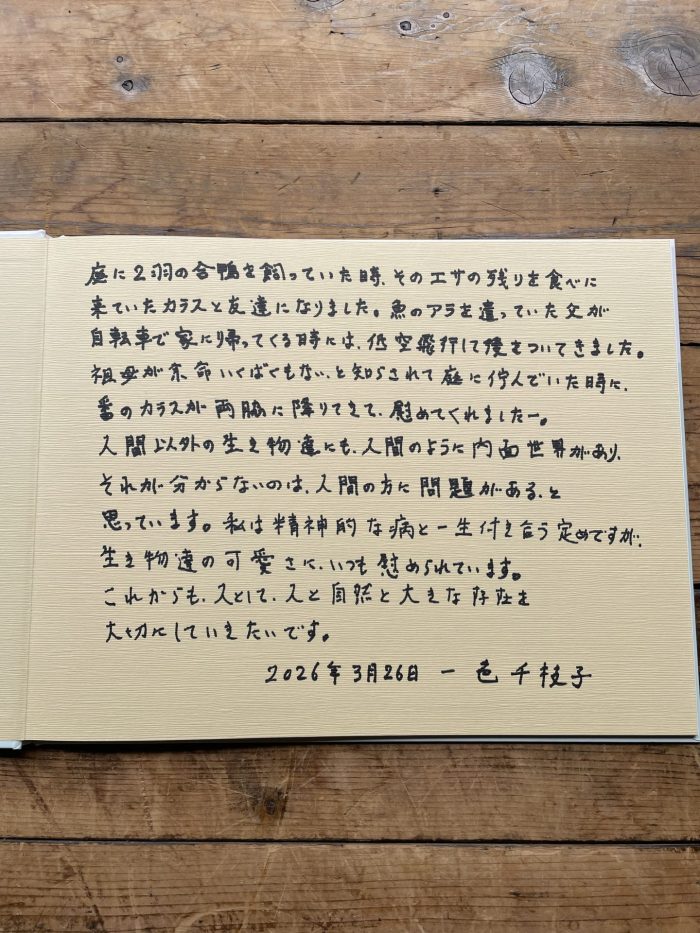 庭に2羽の合鴨を飼っていた時、そのエサの残りを食べに
来ていたカラスと友達になりました。魚のアラを遣っていた父が
自転車で家に帰ってくる時には、低空飛行して後をついてきました。
祖母が余命いくばくもない、と知らされて庭に佇んでいた時に、
番のカラスが両脇に降りてきて、慰めてくれましたー。
人間以外の生き物達にも、人間のように内面世界があり、
それが分からないのは、人間の方に問題がある、と
思っています。私は精神的な病と一生付き合う定めですが、
生き物達の可愛さに、いつも慰められています。
これからも、人として、人と自然と大きな存在を
大切にしていきたいです。
2026年3月26日 一色千枝子